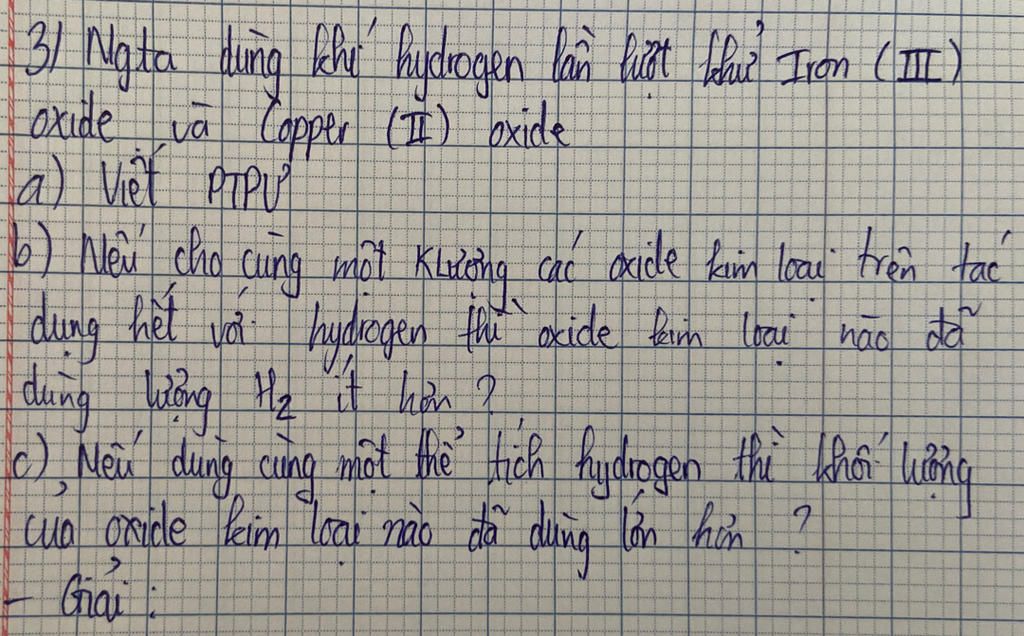 3) Ngta dùng khí hydrogen lần lượt khử Iron (III)
oxide và Copper (II) oxide
a) Viết PTPƯ
b) Nếu cho cùng một KLượng các oxide kim loại trên tác
dụng hết với hydrogen thì oxide kim loại nào đã
dùng lượng H₂ ít hơn ?
c) Nếu dùng cùng một thể tích hydrogen thì khối lượng
của oxide kim loại nào đã dùng lớn hơn ?
- Giải :